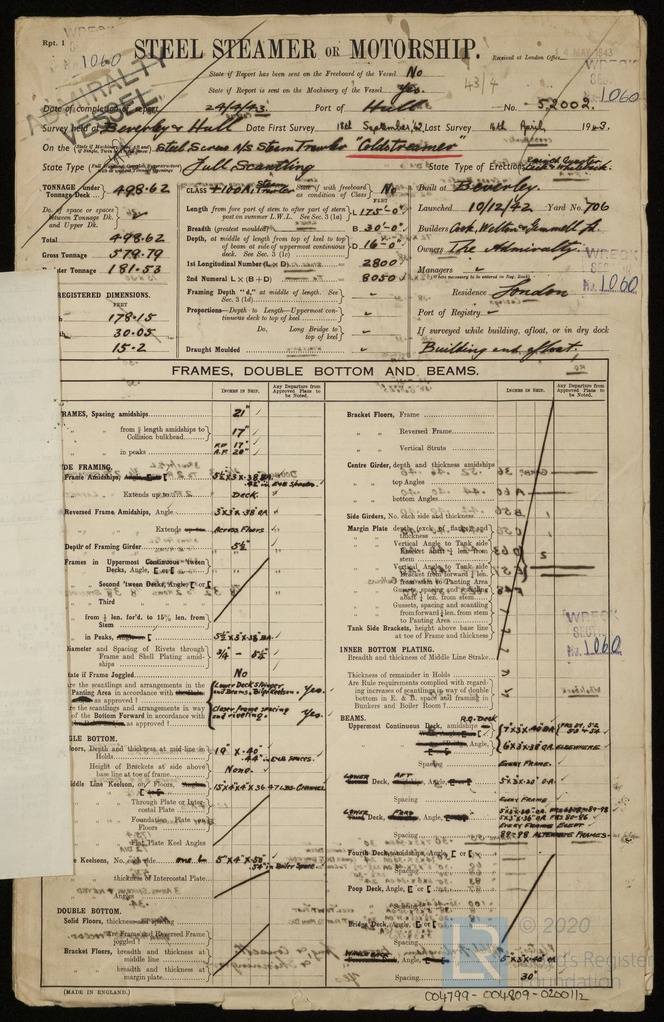 Rpt. 1
WRECK
1060
ADMIRALTY
VESSEL
STEEL STEAMER OR MOTORSHIP.
Received at London Office
14 MAY 1943
WRECK
SEP
No. 1060
State if Report has been sent on the Freeboard of the Vessel No
State if Report is sent on the Machinery of the Vessel Yes.
43/4
Date of completion of report 24/4/43. Port of Hull No. 52002
Survey held at Beverley & Hull Date First Survey 18th September '42 Last Survey 14th April, 1943.
On the Steel Screw Steam Trawler "Coldstreamer"
State Type Full Scantling State Type of Erections
TONNAGE under Tonnage Deck 498.62
Do. of space or spaces between Tonnage Dk. and Upper Dk.
Total 498.62
Gross Tonnage 579.79
Register Tonnage 181.53
REGISTERED DIMENSIONS.
FEET
178.15
30.05
15.2
CLASS +100A1 Steam Trawler State if with freeboard as condition of Class No
Length from fore part of stem to after part of stern post on summer L.W.L. See Sec. 3 (1a) L 175'-0"
Breadth (greatest moulded) B 30'-0"
Depth, at middle of length from top of keel to top of beam at side of uppermost continuous deck. See Sec. 3 (1c) D 16'-0"
1st Longitudinal Number (L x D) 2800
2nd Numeral L x (B+D) 8050
Framing Depth "d," at middle of length. See Sec. 3 (1d)
Proportions—Depth to Length—Uppermost continuous deck to top of keel
Do. Long Bridge to top of keel
Draught Moulded
Built at Beverley.
Launched 10/12/42 Yard No. 706
Builders Cook, Welton & Gemmell Ld.
Owners The Admiralty
Managers
Residence London
Port of Registry
If surveyed while building, afloat, or in dry dock
Building and afloat.
WRECK
No. 1060
FRAMES, DOUBLE BOTTOM AND BEAMS.
INCHES IN SHIP.
Any Departure from Approved Plans to be Noted.
INCHES IN SHIP.
Any Departure from Approved Plans to be Noted.
FRAMES, Spacing amidships 21"
from ⅗ length amidships to Collision bulkhead 17"
in peaks F.P. 17" A.P. 20"
SIDE FRAMING.
Frame Amidships, Angle 5½ x 3 x .38 BA
Extends up to Deck
Reversed Frame Amidships, Angle 3 x 3 x .38 BA
Extends Across Floors
Depth of Framing Girder 5½"
Frames in Uppermost Continuous 'tween Decks, Angle, [ or [
Second 'tween Decks, Angle, [ or [
Third
from ⅗ len. for'd. to 15% len. from Stem
in Peaks, Angle 5½ x 3 x .38 BA
Diameter and Spacing of Rivets through Frame and Shell Plating amidships ¾ - 5½"
State if Frame Joggled No
Are the scantlings and arrangements in the Panting Area in accordance with as approved? Yes.
Are the scantlings and arrangements in way of the Bottom Forward in accordance with as approved? Closer frame spacing and riveting. Yes.
SINGLE BOTTOM.
Floors, Depth and thickness at mid-line in Holds 19" x .40"
.44" in E&B Spaces.
Height of Brackets at side above base line at toe of frame None.
Middle Line Keelson, on Floors, Angles 15" x 4" x 4" x 36.47 LBS Channel
Through Plate or Intercostal Plate
Foundation Plate on Floors
Flat Plate Keel Angles
Side Keelsons, No. each side one 5" x 4" x .50"
.54" in Boiler Space
thickness of Intercostal Plate
Angles
DOUBLE BOTTOM.
Solid Floors, thickness and spacing
Are Frame and Reversed Frame joggled?
Bracket Floors, breadth and thickness at middle line
breadth and thickness at margin plate
Bracket Floors, Frame
Reversed Frame
Vertical Struts
Centre Girder, depth and thickness amidships
top Angles
bottom Angles
Side Girders, No. each side and thickness
Margin Plate depth (excl. of flange) and thickness
Vertical Angle to Tank side Bracket abaft ⅕ len. from stem
Vertical Angle to Tank side Bracket from forward ⅕ len. from stem to Panting Area
Gussets, spacing and scantling abaft ⅕ len. from stem
Gussets, spacing and scantling from forward ⅕ len. from stem to Panting Area
Tank Side Brackets, height above base line at toe of Frame and thickness
WRECK
SEP
No. 1060
INNER BOTTOM PLATING.
Breadth and thickness of Middle Line Strake
Thickness of remainder in Holds
Are Rule requirements complied with regarding increases of scantling in way of double bottom in E. & B. space and framing in Bunkers and Boiler Room?
BEAMS.
R.Q. Deck
Uppermost Continuous Deck, amidships 7" x 3" x .40" BA FRS 51, 52, 53 & 54
6 x 3 x .38 BA ELSEWHERE
Spacing EVERY FRAME.
LOWER Deck, AFT 5" x 3 x .30" BA
Spacing EVERY FRAME
LOWER Deck, FORD
EVERY FRAME EXCEPT
Spacing 88-98 ALTERNATE FRAMES.
Fourth Deck, amidships, Angle, [ or [
Spacing
Poop Deck, Angle, [ or [
Spacing
Bridge Deck, Angle, [ or [
Spacing
WHALEBACK Angle, [ or [ 5" x 3 x .40" BA
Spacing 30"
(MADE IN ENGLAND.)
LR
© 2020
Lloyd's Register
Foundation
004799-004809-0200 1/2